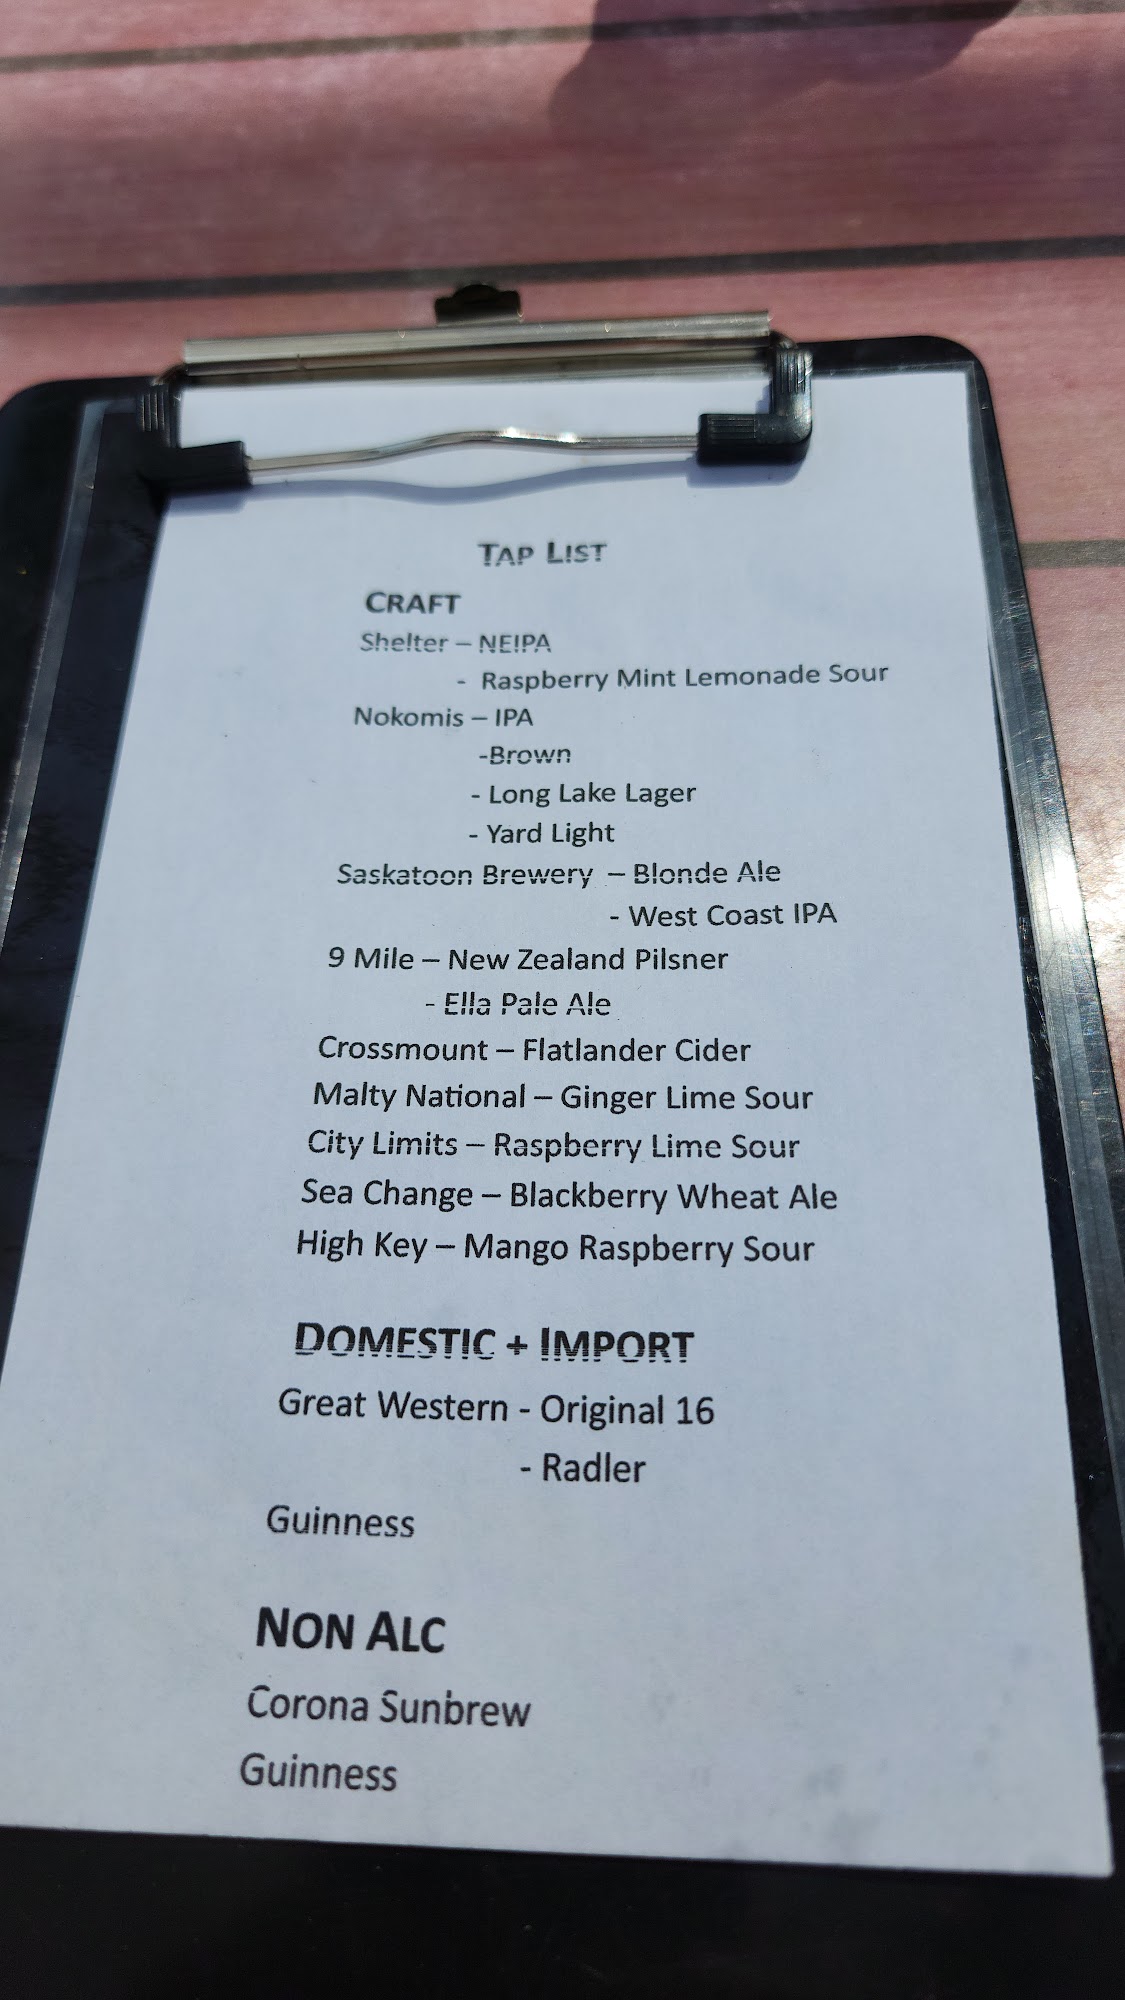 TAP LIST
CRAFT
Shelter – NEIPA
- Raspberry Mint Lemonade Sour
Nokomis – IPA
-Brown
- Long Lake Lager
- Yard Light
Saskatoon Brewery – Blonde Ale
- West Coast IPA
9 Mile – New Zealand Pilsner
- Ella Pale Ale
Crossmount – Flatlander Cider
Malty National – Ginger Lime Sour
City Limits – Raspberry Lime Sour
Sea Change – Blackberry Wheat Ale
High Key – Mango Raspberry Sour
DOMESTIC + IMPORT
Great Western - Original 16
- Radler
Guinness
NON ALC
Corona Sunbrew
Guinness